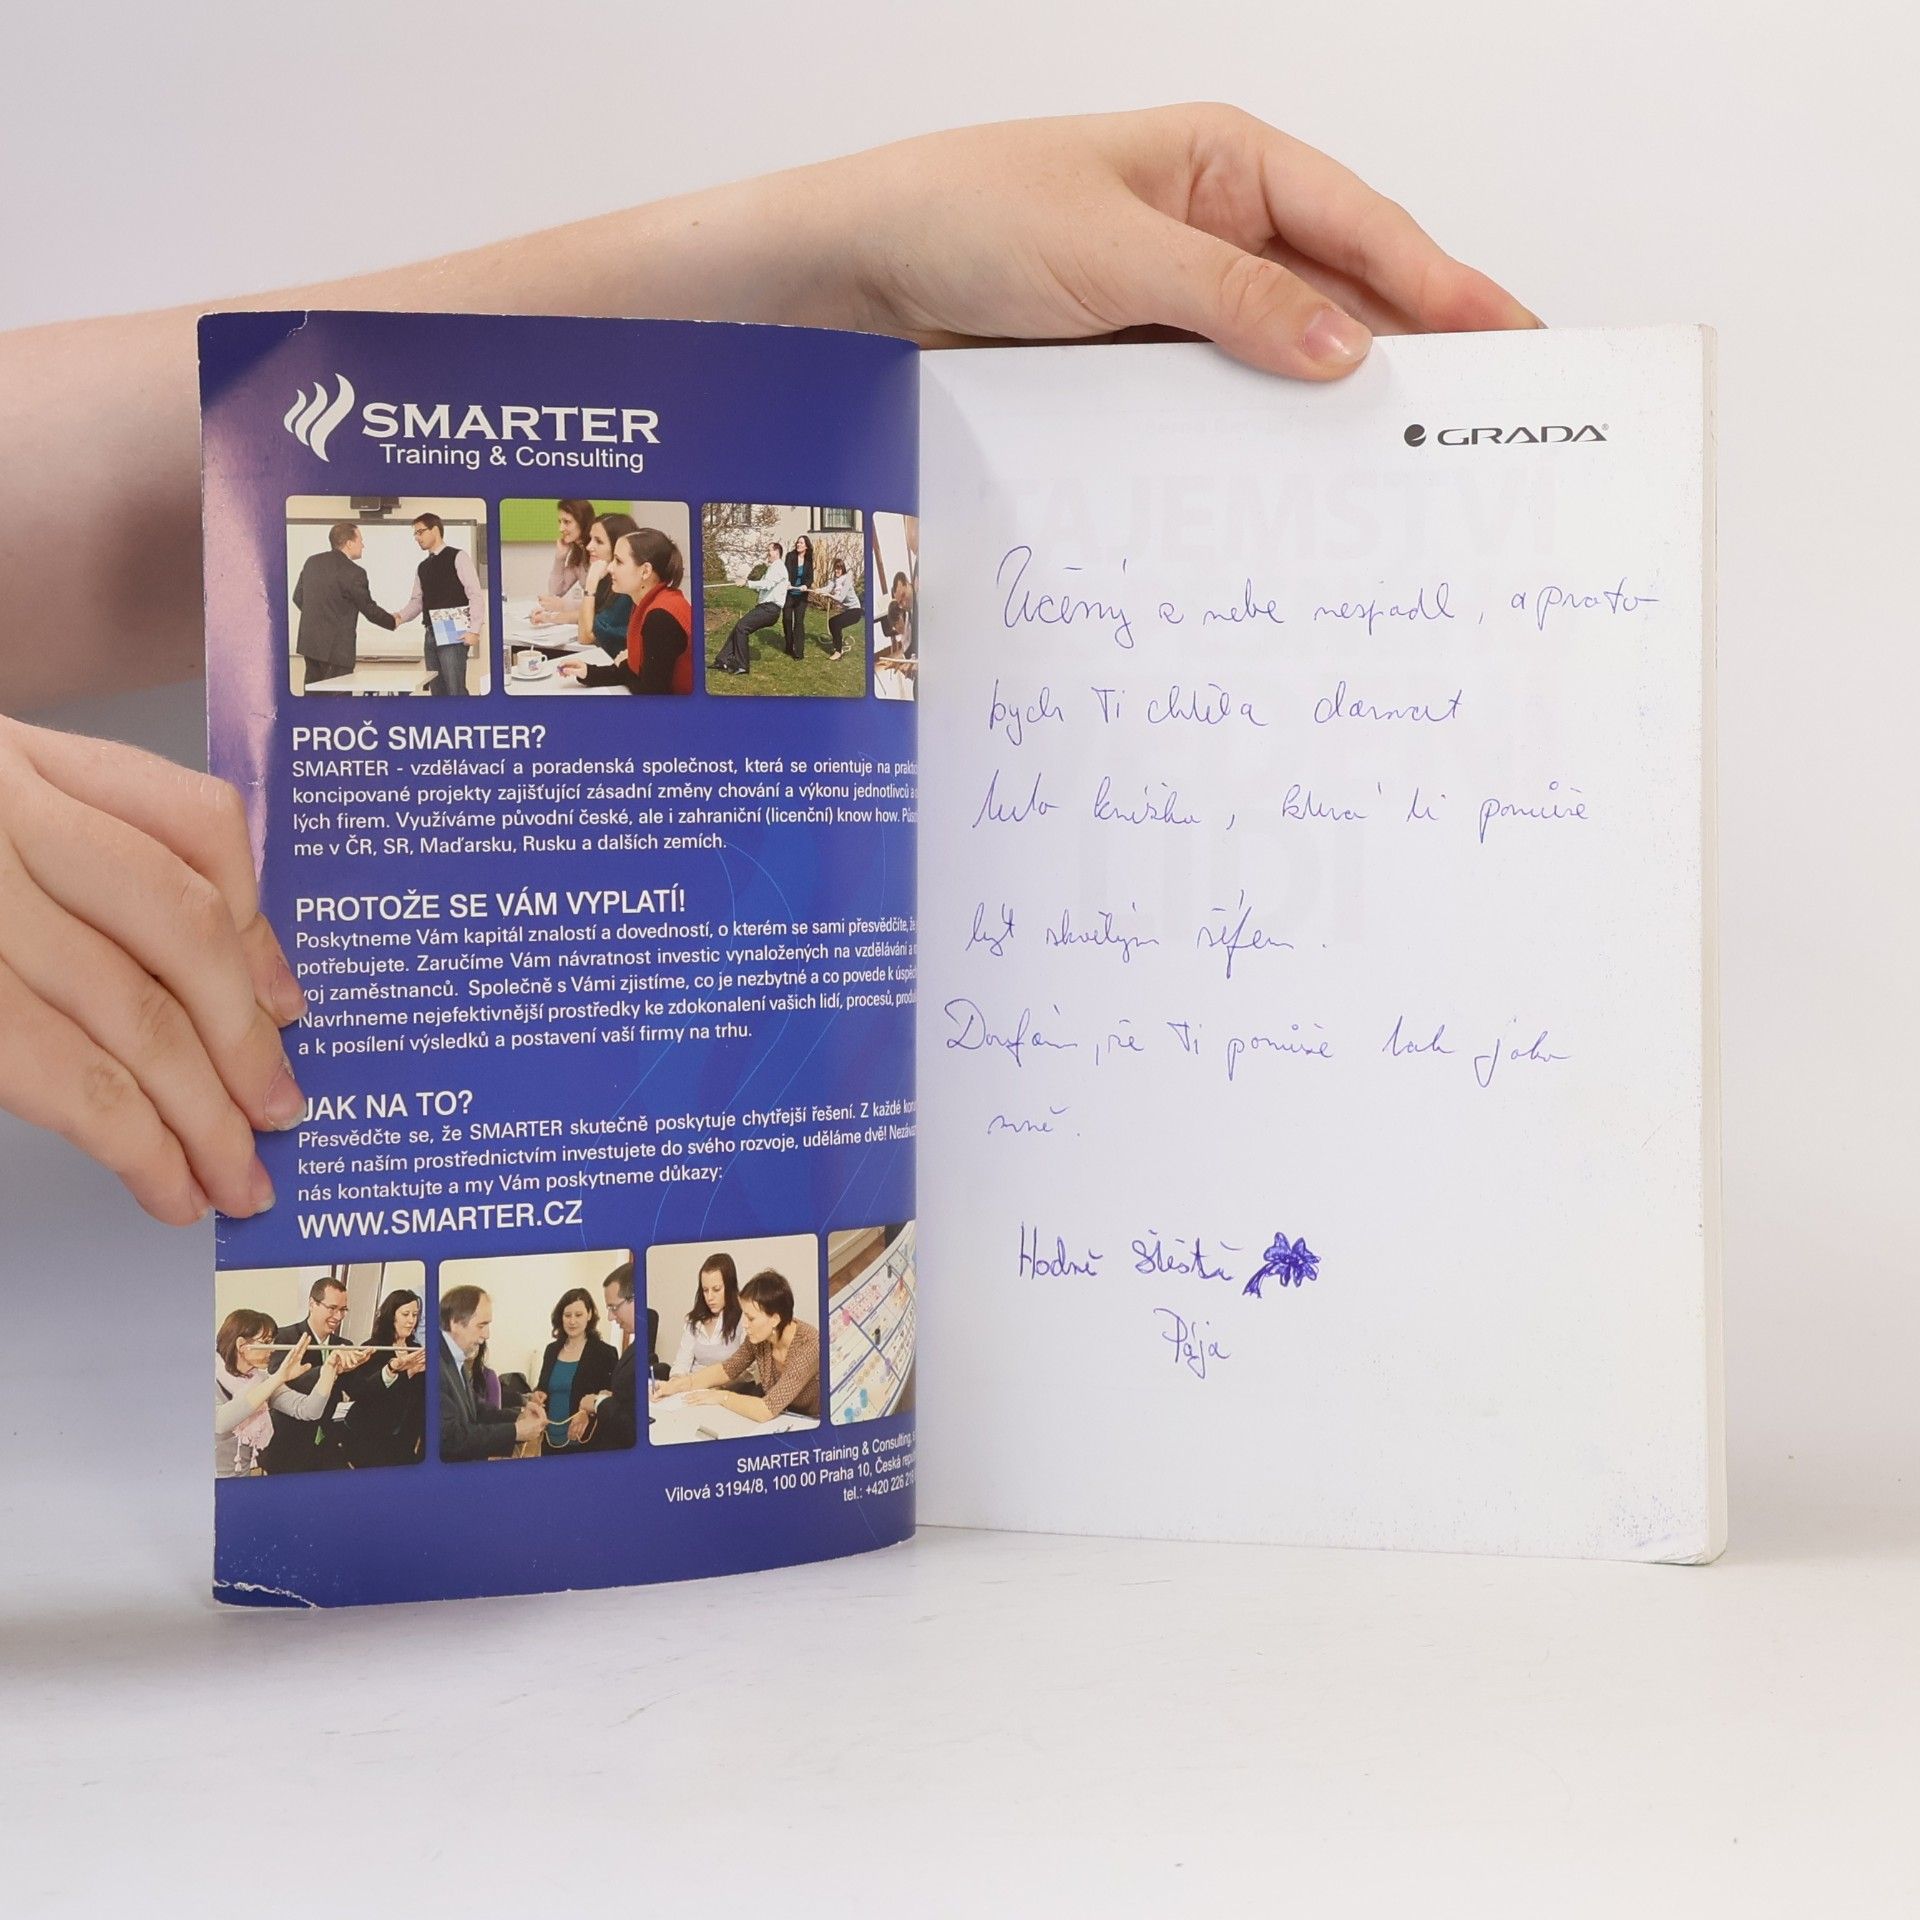 SMARTER
Training & Consulting
PROČ SMARTER?
SMARTER - vzdělávací a poradenská společnost, která se orientuje na prakti
koncipované projekty zajišťující zásadní změny chování a výkonu jednotlivců a
lých firem. Využíváme původní české, ale i zahraniční (licenční) know how. Půso
me v ČR, SR, Maďarsku, Rusku a dalších zemích.
PROTOŽE SE VÁM VYPLATÍ!
Poskytneme Vám kapitál znalostí a dovedností, o kterém se sami přesvědčíte, že
potřebujete. Zaručíme Vám návratnost investic vynaložených na vzdělávání a
voj zaměstnanců. Společně s Vámi zjistíme, co je nezbytné a co povede k úspěc
Navrhneme nejefektivnější prostředky ke zdokonalení vašich lidí, procesů, produ
a k posílení výsledků a postavení vaší firmy na trhu.
JAK NA TO?
Přesvědčte se, že SMARTER skutečně poskytuje chytřejší řešení. Z každé koru
které naším prostřednictvím investujete do svého rozvoje, uděláme dvě! Nezáva
nás kontaktujte a my Vám poskytneme důkazy:
WWW.SMARTER.CZ
SMARTER Training & Consulting,
Vilová 3194/8, 100 00 Praha 10, Česká repu
tel.: +420 226 21
GRADA®
Učený z nebe nespadl, a proto
bych Ti chtěla darovat
tuto knížku, která ti pomůže
být skvělým šéfem.
Doufám, že Ti pomůže tak jako
mně.
Hodně štěstí
Pája